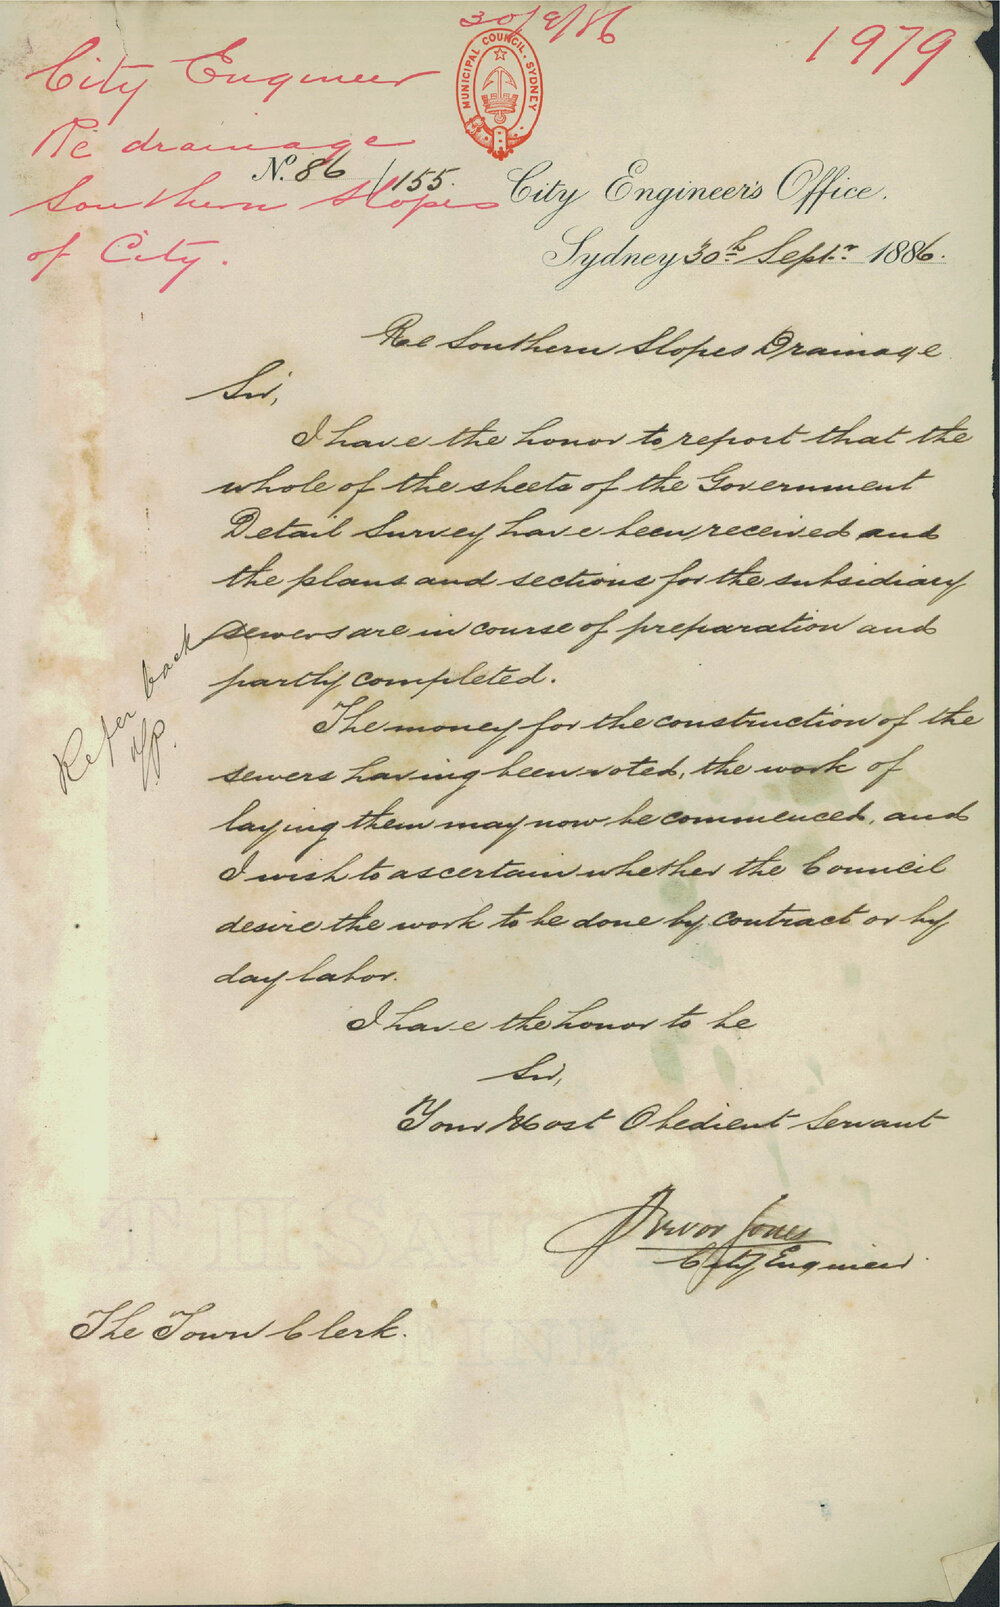 30/9/86
1979
City Engineer
Re drainage
Southern Slopes
of City.
MUNICIPAL COUNCIL · SYDNEY
No. 86/155.
City Engineer's Office.
Sydney 30th Septr. 1886.
Re Southern Slopes Drainage
Sir,
I have the honor to report that the
whole of the sheets of the Government
Detail Survey have been received and
the plans and sections for the subsidiary
sewers are in course of preparation and
partly completed.
The money for the construction of the
sewers having been voted, the work of
laying them may now be commenced, and
I wish to ascertain whether the Council
desire the work to be done by contract or by
day labor.
I have the honor to be
Sir,
Your Most Obedient Servant
Trevor Jones
City Engineer
The Town Clerk.
Refer back